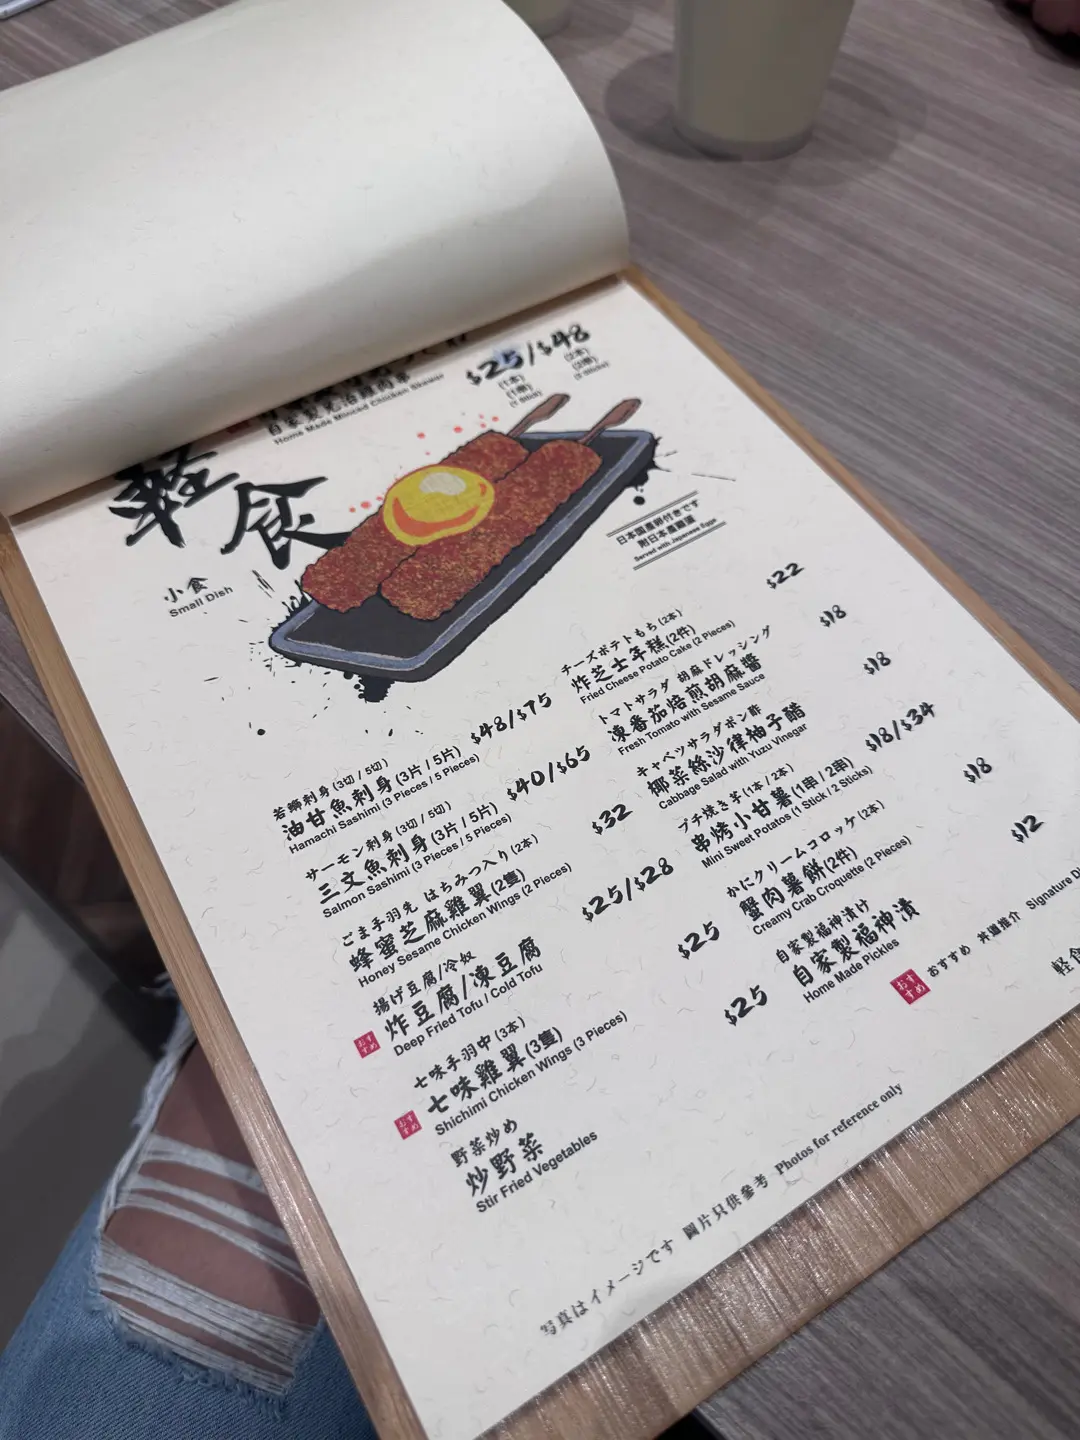 $25/$48
(1本)
(1串)
(1 Stick)
(2本)
(2串)
(2 Sticks)
自家製免治雞肉串
Home Made Minced Chicken Skewer
軽食
小食
Small Dish
日本国産卵付きです
附日本農雞蛋
Served with Japanese Eggs
若鰤刺身 (3切 / 5切)
油甘魚刺身 (3片 / 5片) $48/$75
Hamachi Sashimi (3 Pieces / 5 Pieces)
サーモン刺身 (3切 / 5切)
三文魚刺身 (3片 / 5片) $40/$65
Salmon Sashimi (3 Pieces / 5 Pieces)
ごま手羽先 はちみつ入り (2本)
蜂蜜芝麻雞翼 (2隻) $32
Honey Sesame Chicken Wings (2 Pieces)
揚げ豆腐/冷奴
おすすめ 炸豆腐/凍豆腐 $25/$28
Deep Fried Tofu / Cold Tofu
七味手羽中 (3本)
おすすめ 七味雞翼 (3隻) $25
Shichimi Chicken Wings (3 Pieces)
野菜炒め
炒野菜 $25
Stir Fried Vegetables
チーズポテトもち (2本)
炸芝士年糕 (2件) $22
Fried Cheese Potato Cake (2 Pieces)
トマトサラダ 胡麻ドレッシング
凍番茄焙煎胡麻醬 $18
Fresh Tomato with Sesame Sauce
キャベツサラダポン酢
椰菜絲沙律柚子醋 $18
Cabbage Salad with Yuzu Vinegar
プチ焼き芋 (1本 / 2本)
串烤小甘薯 (1串 / 2串) $18/$34
Mini Sweet Potatos (1 Stick / 2 Sticks)
かにクリームコロッケ (2本)
蟹肉薯餅 (2件) $18
Creamy Crab Croquette (2 Pieces)
自家製福神漬け
自家製福神漬 $12
Home Made Pickles
おすすめ おすすめ 丼邊推介 Signature
軽食
写真はイメージです 圖片只供參考 Photos for reference only